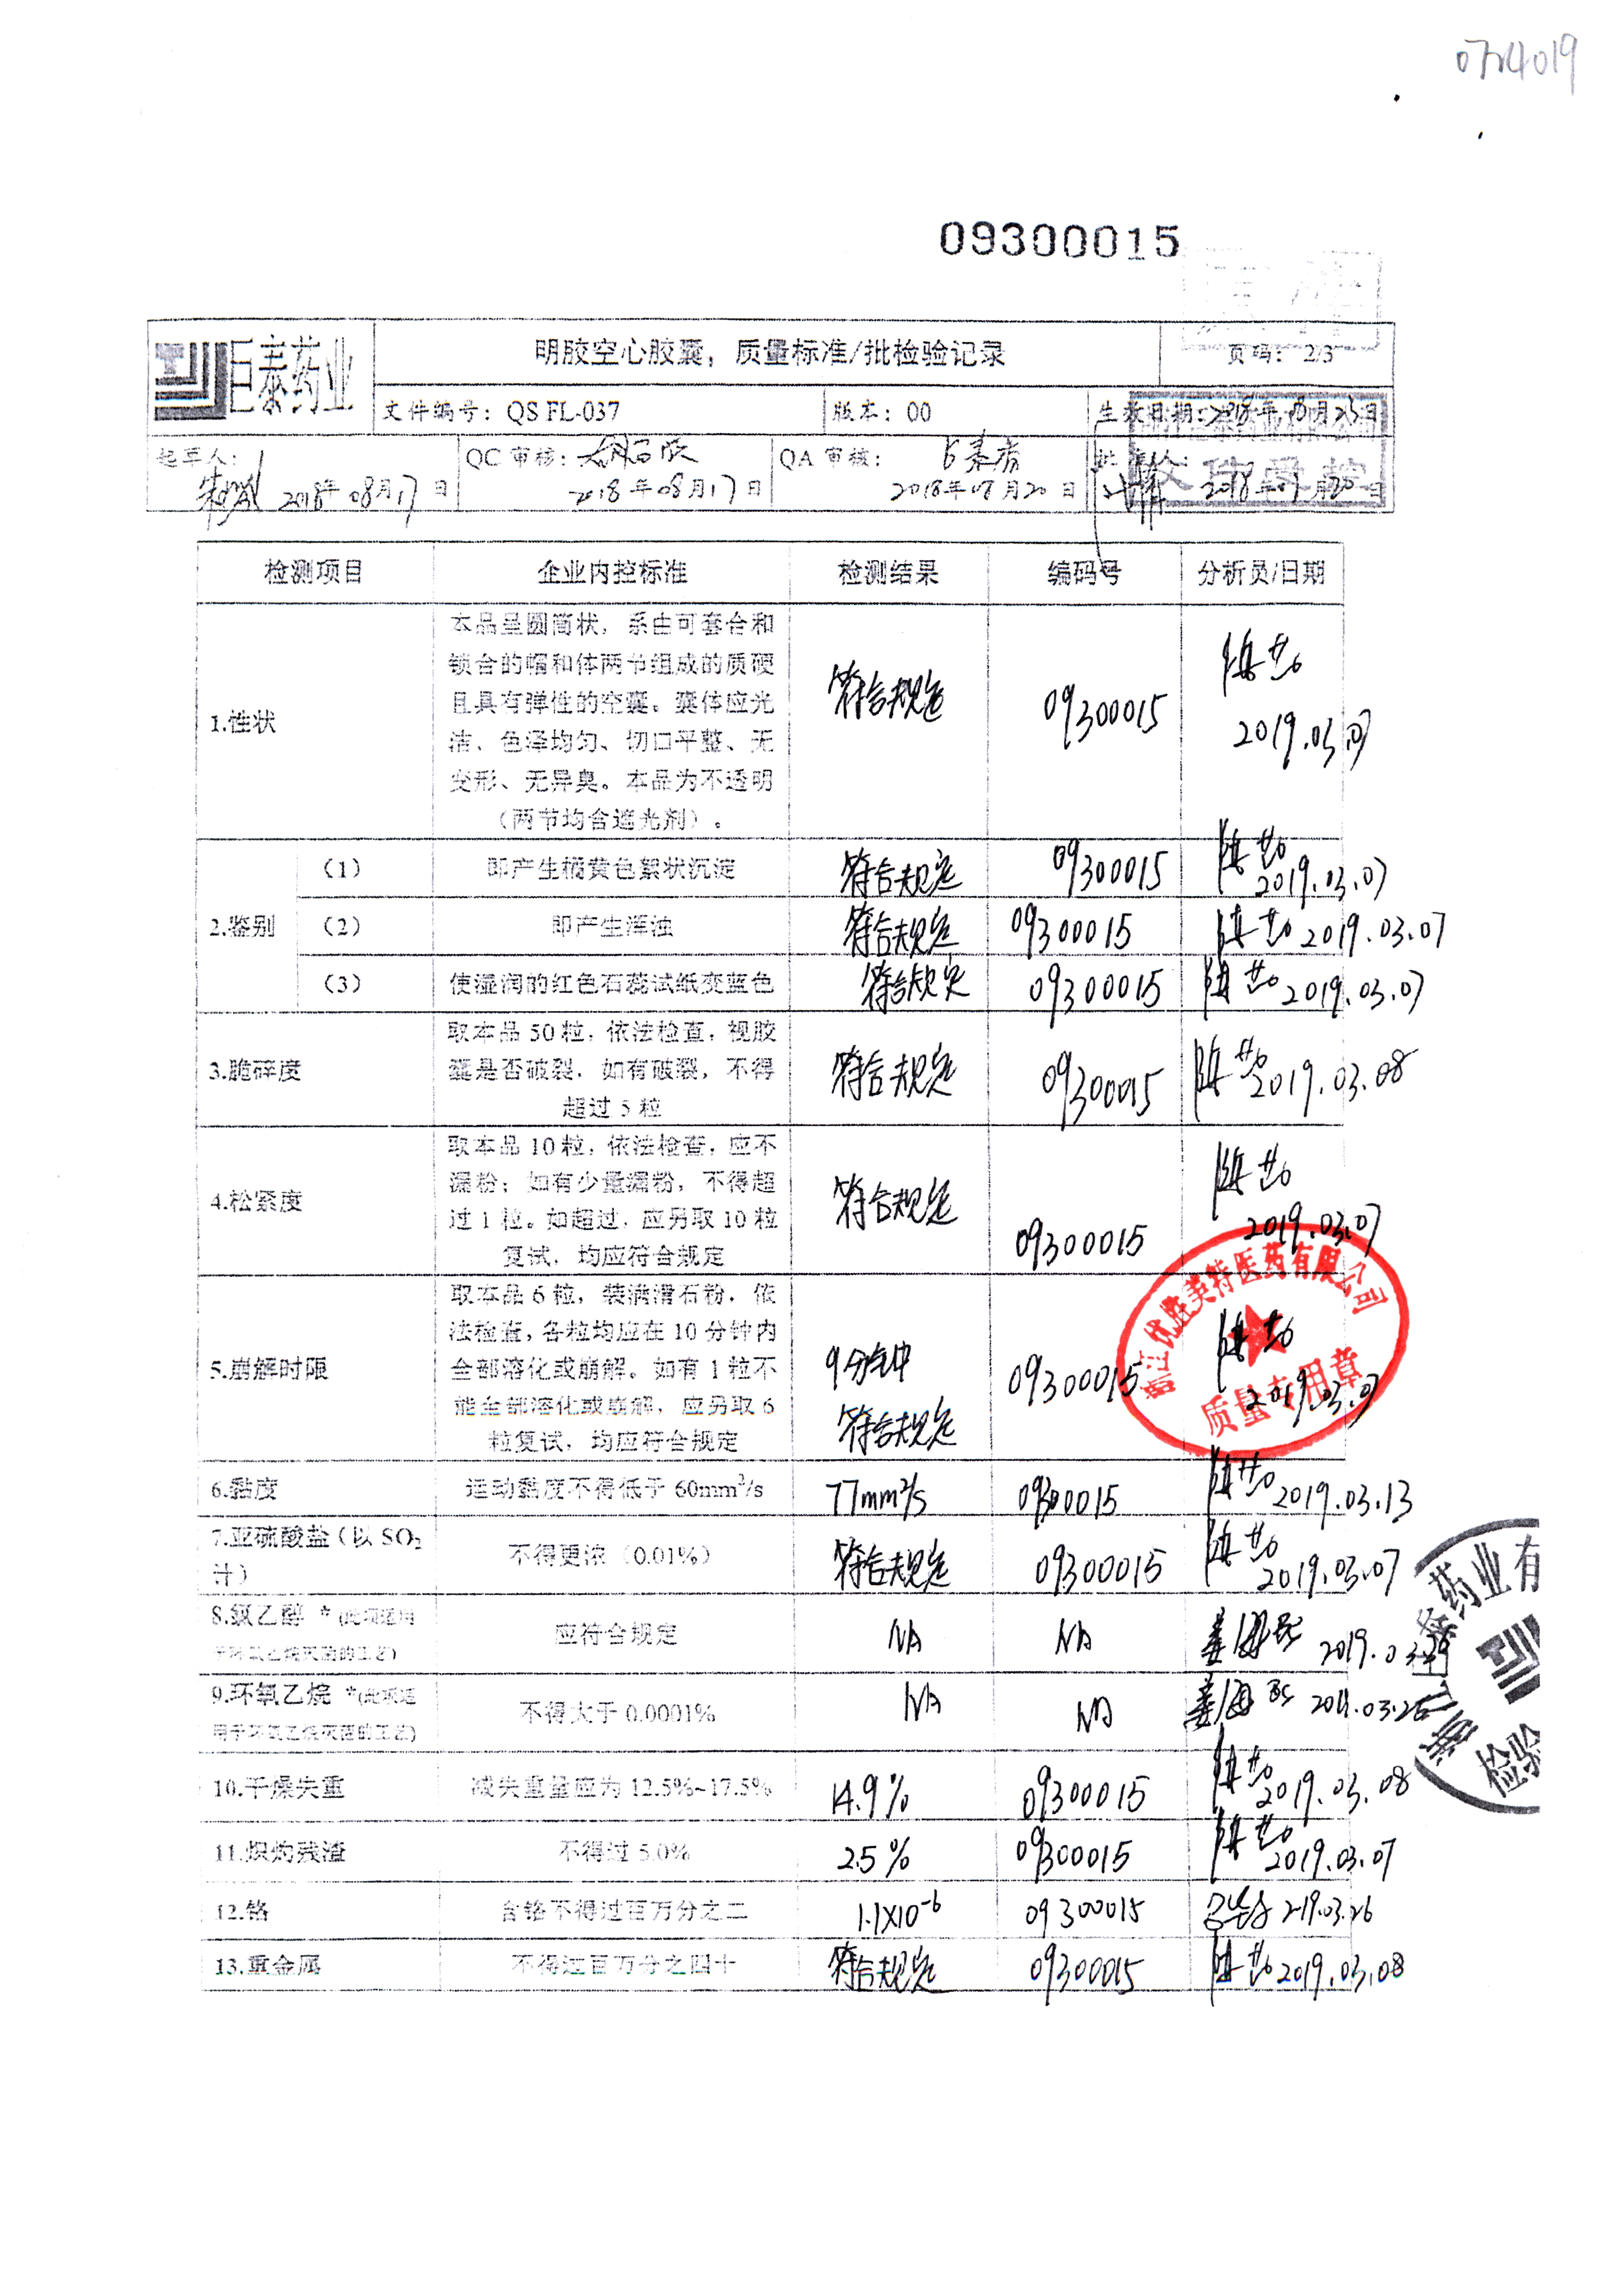 09300015
巨泰药业
明胶空心胶囊,质量标准/批检验记录
页码: 2/3
文件编号: QS FL-037
版本: 00
生效日期:
起草人:
2018年08月17日
QC 审核:
2018年08月17日
QA 审核:
2018年08月20日
检测项目 企业内控标准 检测结果 编码号 分析员/日期
1.性状
本品呈圆筒状,系由可套合和
锁合的帽和体两节组成的质硬
且具有弹性的空囊。囊体应光
洁、色泽均匀、切口平整、无
变形、无异臭。本品为不透明
(两节均含遮光剂)。
符合规定
09300015
2019.03.07
2.鉴别
(1) 即产生橘黄色絮状沉淀 符合规定 09300015 2019.03.07
(2) 即产生浑浊 符合规定 09300015 2019.03.07
(3) 使湿润的红色石蕊试纸变蓝色 符合规定 09300015 2019.03.07
3.脆碎度
取本品 50 粒,依法检查,视胶
囊是否破裂,如有破裂,不得
超过 5 粒
符合规定
09300015
2019.03.08
4.松紧度
取本品 10 粒,依法检查,应不
漏粉;如有少量漏粉,不得超
过 1 粒。如超过,应另取 10 粒
复试,均应符合规定
符合规定
09300015
2019.03.07
5.崩解时限
取本品 6 粒,装满滑石粉,依
法检查,各粒均应在 10 分钟内
全部溶化或崩解。如有 1 粒不
能全部溶化或崩解,应另取 6
粒复试,均应符合规定
9分钟
符合规定
09300015
2019.03.07
优胜美特医药有限公司
质量专用章
6.黏度 运动黏度不得低于 60mm²/s 77mm²/s 09300015 2019.03.13
7.亚硫酸盐(以 SO₂
计)
不得更浓(0.01%) 符合规定 09300015 2019.03.07
8.氯乙醇 *(此项适用
于环氧乙烷灭菌的工艺)
应符合规定 NA NA
9.环氧乙烷 *(此项适
用于环氧乙烷灭菌的工艺)
不得大于 0.0001% NA NA
10.干燥失重 减失重量应为 12.5%~17.5% 14.9% 09300015 2019.03.08
11.炽灼残渣 不得过 5.0% 2.5% 09300015 2019.03.07
12.铬 含铬不得过百万分之二 1.1×10⁻⁶ 09300015 2019.03.26
13.重金属 不得过百万分之四十 符合规定 09300015 2019.03.08
泰药业有
检验